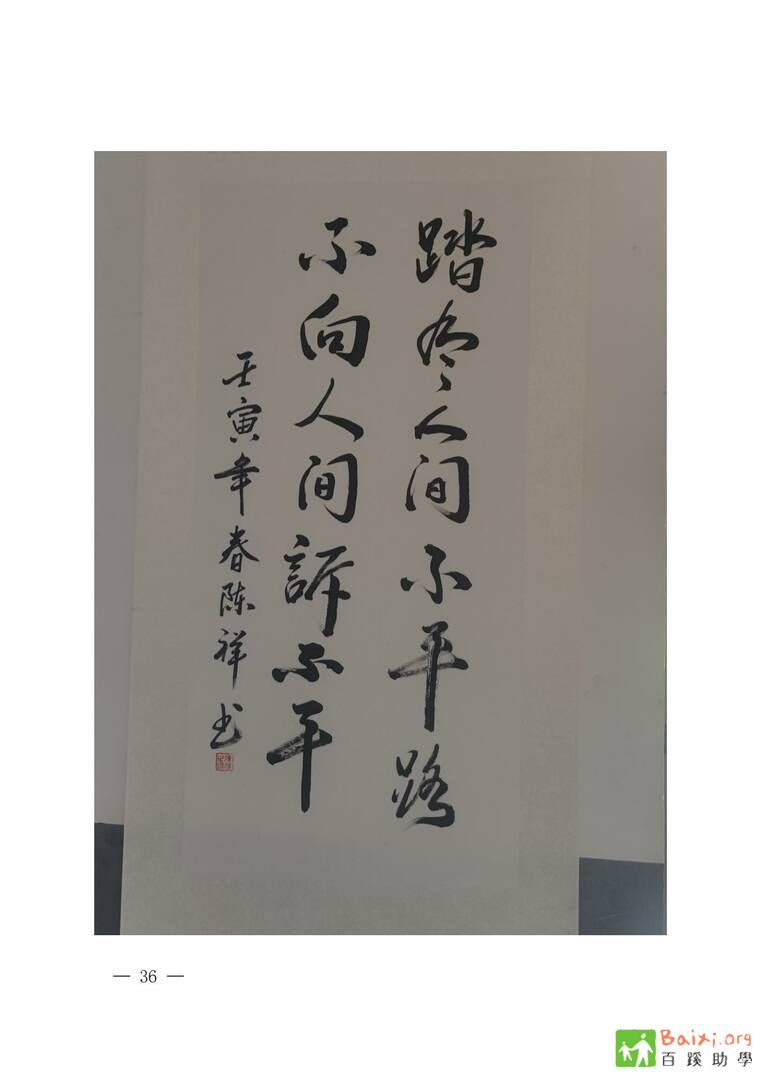 踏尽人间不平路
不向人间訴不平
壬寅年春陈祥书
— 36 —
Baixi.org
百蹊助學